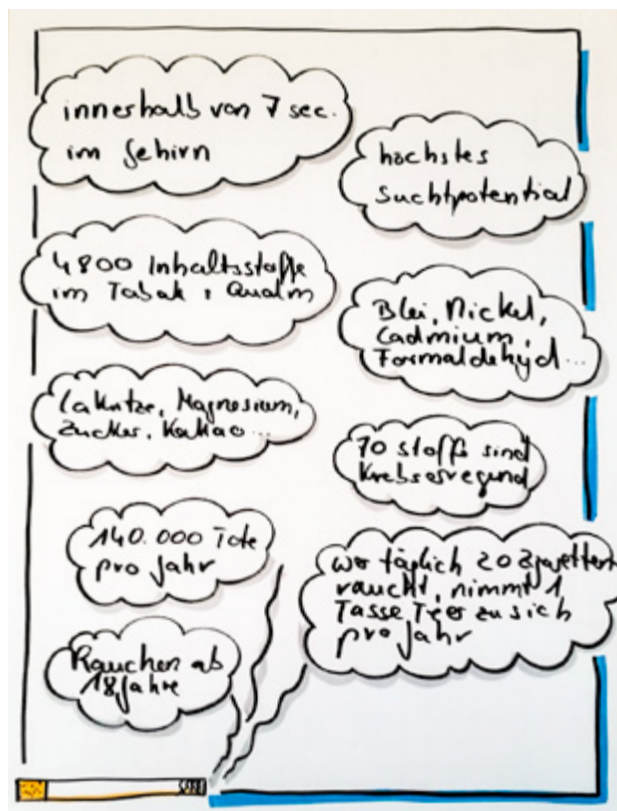 innerhalb von 7 sec.
im Gehirn
höchstes
Suchtpotential
4800 Inhaltsstoffe
im Tabak + Qualm
Blei, Nickel,
Cadmium,
Formaldehyd...
Lakritze, Magnesium,
Zucker, Kakao...
70 Stoffe sind
Krebserregend
140.000 Tote
pro Jahr
wer täglich 20 Zigaretten
raucht, nimmt 1
Tasse Teer zu sich
pro Jahr
Rauchen ab
18 Jahre